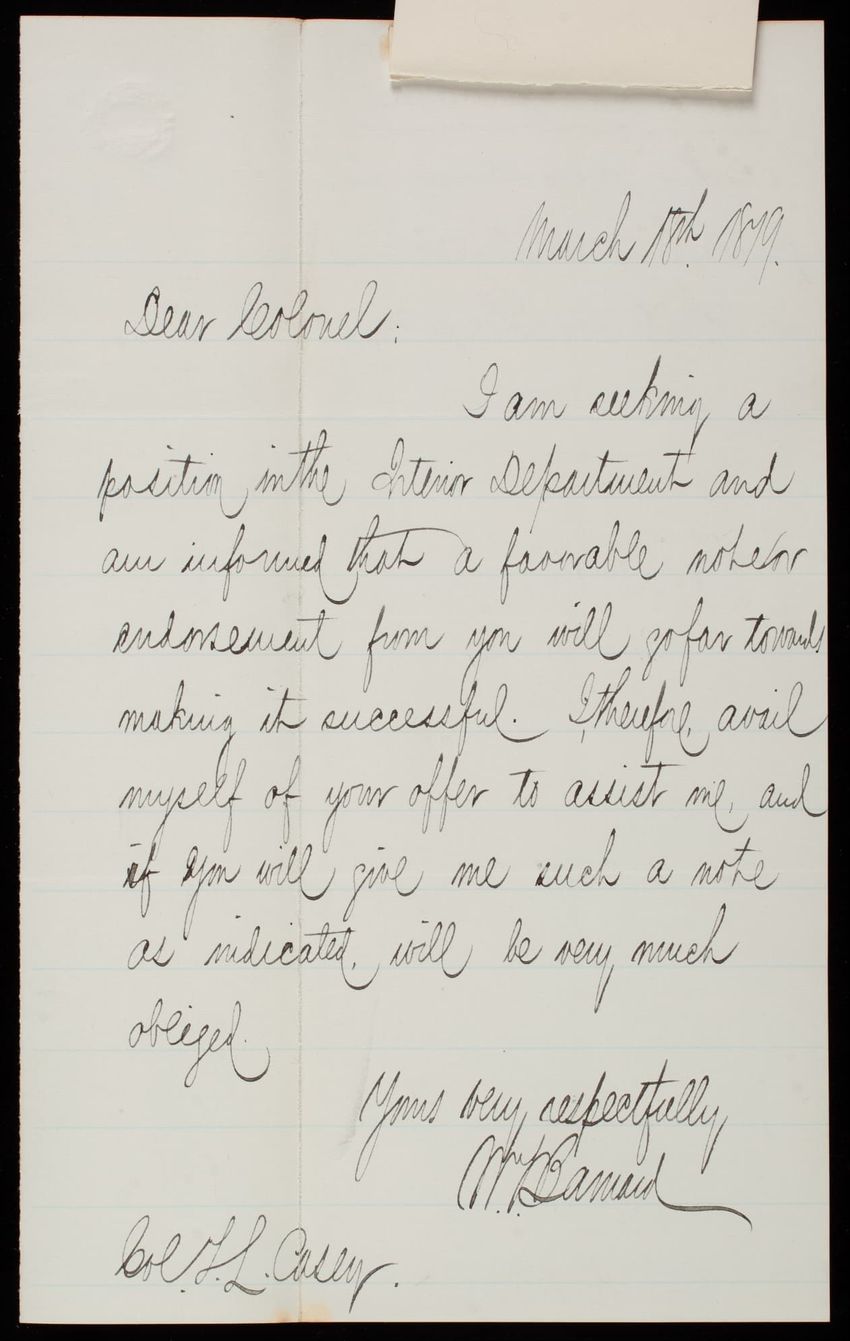 March 18th. 1879.
Dear Colonel:
I am seeking a
position in the Interior Department and
am informed that a favorable note or
endorsement from you will go far towards
making it successful. I, therefore, avail
myself of your offer to assist me, and
if you will give me such a note
as indicated, will be very much
obliged.
Yours very respectfully,
Wm. Barnard
Col. T. L. Casey.